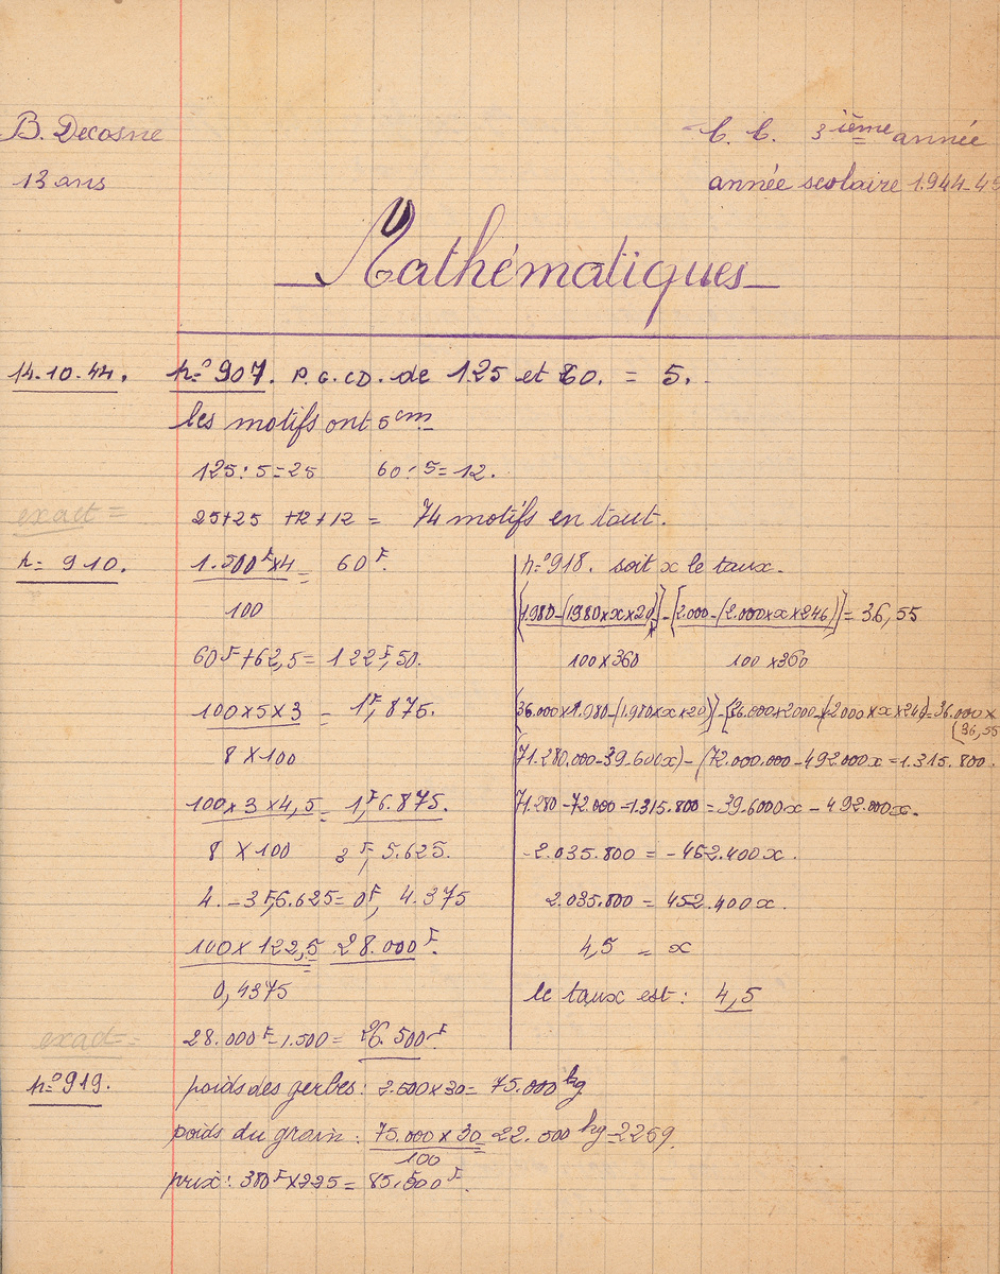 B. Decosne
13 ans
C. C. 3ième année
année scolaire 1944-45
Mathématiques
14.10.44. n:º 907. P.G.C.D. de 125 et 60. = 5.
les motifs ont 5 cm
125 : 5 = 25 60 : 5 = 12.
exact =
25+25 +12+12 = 74 motifs en tout.
n= 910.
1.500F x4 = 60F.
100
60F+62,5 = 122F,50.
100 x 5 x 3 = 1F,875.
8 X 100
100 x 3 x 4,5 = 1F,6.875.
8 X 100 3F,5.625.
4. - 3F,5.625 = 0F, 4.375
100 x 122,5 = 28.000F.
0,4375
exact =
28.000F - 1.500 = 26.500F
n:º 918. soit x le taux.
[1.980-(1980 x x x 20)] - [2.000-(2.000 x x x 246)] = 36,55
100 x 360 100 x 360
[36.000 x 1.980-(1.980 x x x 20)] - [36.000 x 2000 -(2000 x x x 246) = 36.000 x
(36,55
(71.280.000-39.600x) - (72.000.000-492.000x = 1.315.800.
71.280 -72.000 -1.315.800 = 39.6000x - 492.000x.
-2.035.800 = -452.400x.
2.035.800 = 452.400x.
4,5 = x
le taux est : 4,5
n:º 919.
poids des gerbes : 2.500 x 30 = 75.000 kg
poids du grain : 75.000 x 30 = 22.500 kg = 225q.
100
prix : 380F x 225 = 85.500F.